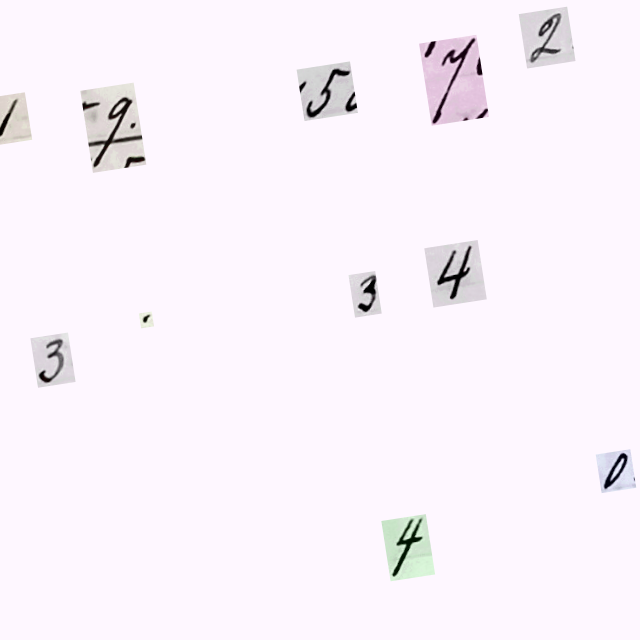 2
1 9. 5 7
3 4
3 .
0
4